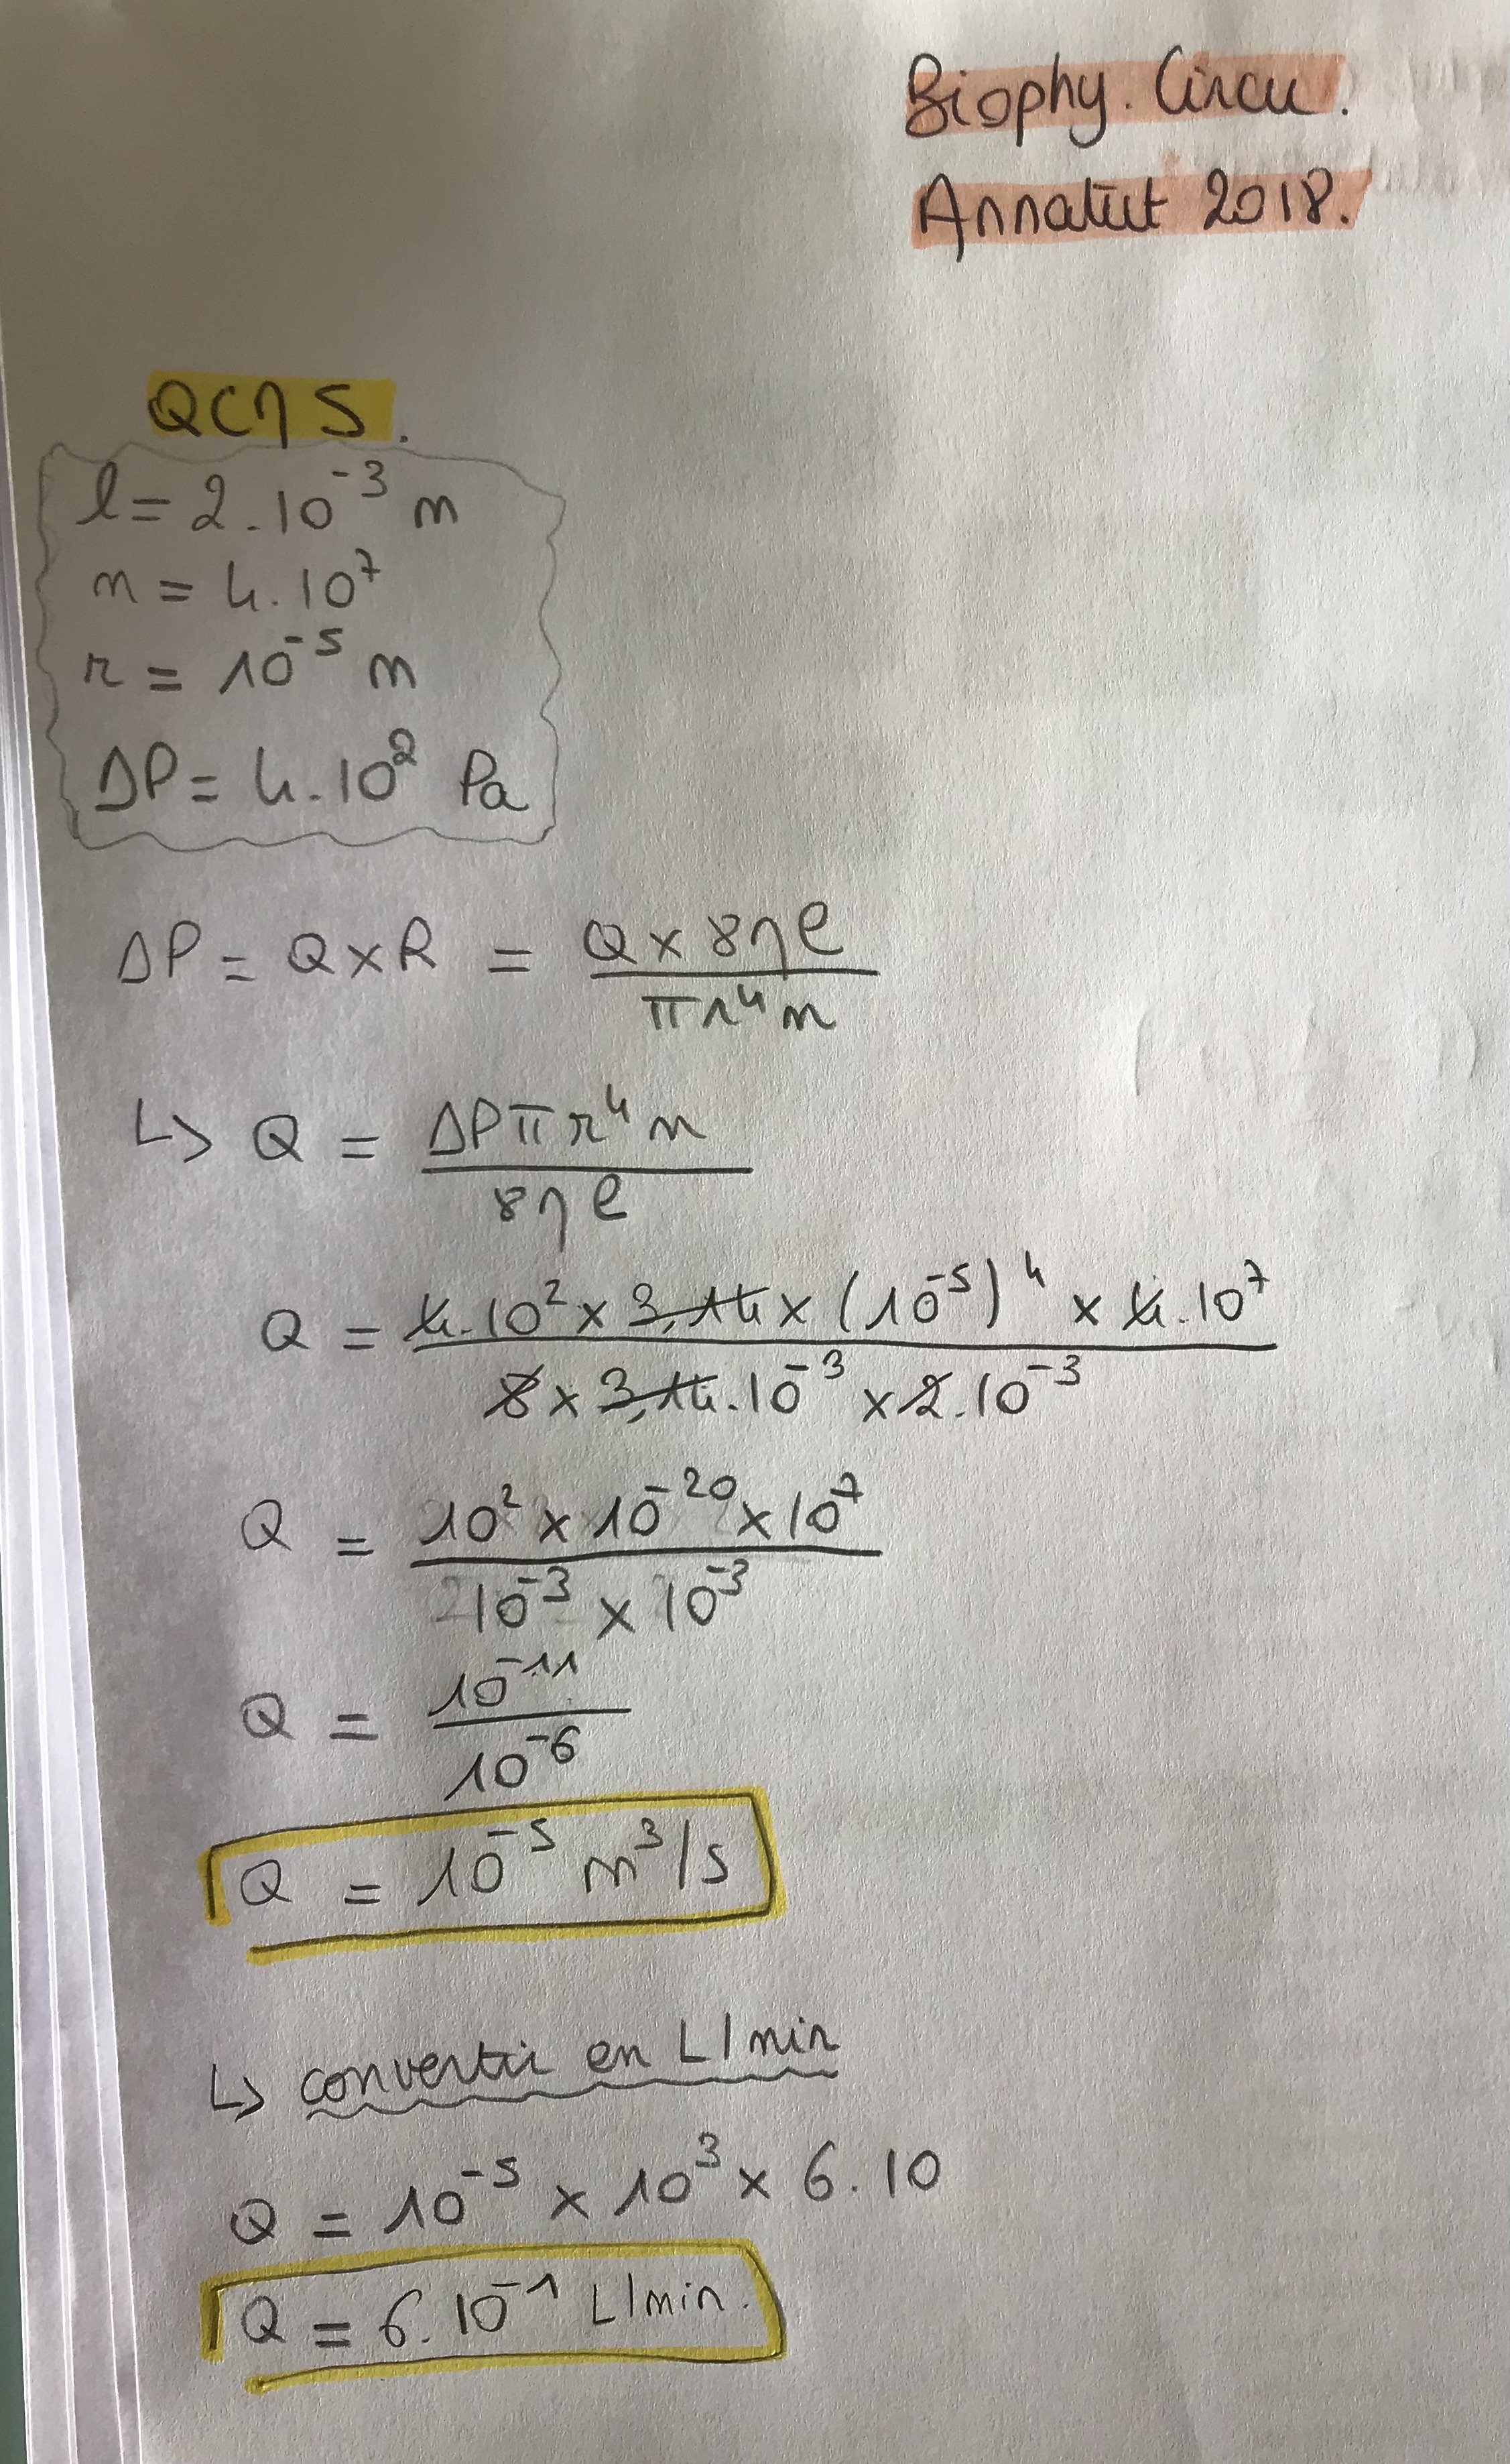 Biophy. Circu.
Annatut 2018.
QCM 5.
l = 2.10⁻³ m
n = 4.10⁷
r = 10⁻⁵ m
ΔP = 4.10² Pa
ΔP = Q×R = Q × 8ηl / πr⁴n
↳ Q = ΔPπr⁴n / 8ηl
Q = 4.10² × 3,14 × (10⁻⁵)⁴ × 4.10⁷ / 8 × 3,14.10⁻³ × 2.10⁻³
Q = 10² × 10⁻²⁰ × 10⁷ / 10⁻³ × 10⁻³
Q = 10⁻¹¹ / 10⁻⁶
Q = 10⁻⁵ m³/s
↳ convertir en L/min
Q = 10⁻⁵ × 10³ × 6.10
Q = 6.10⁻¹ L/min.